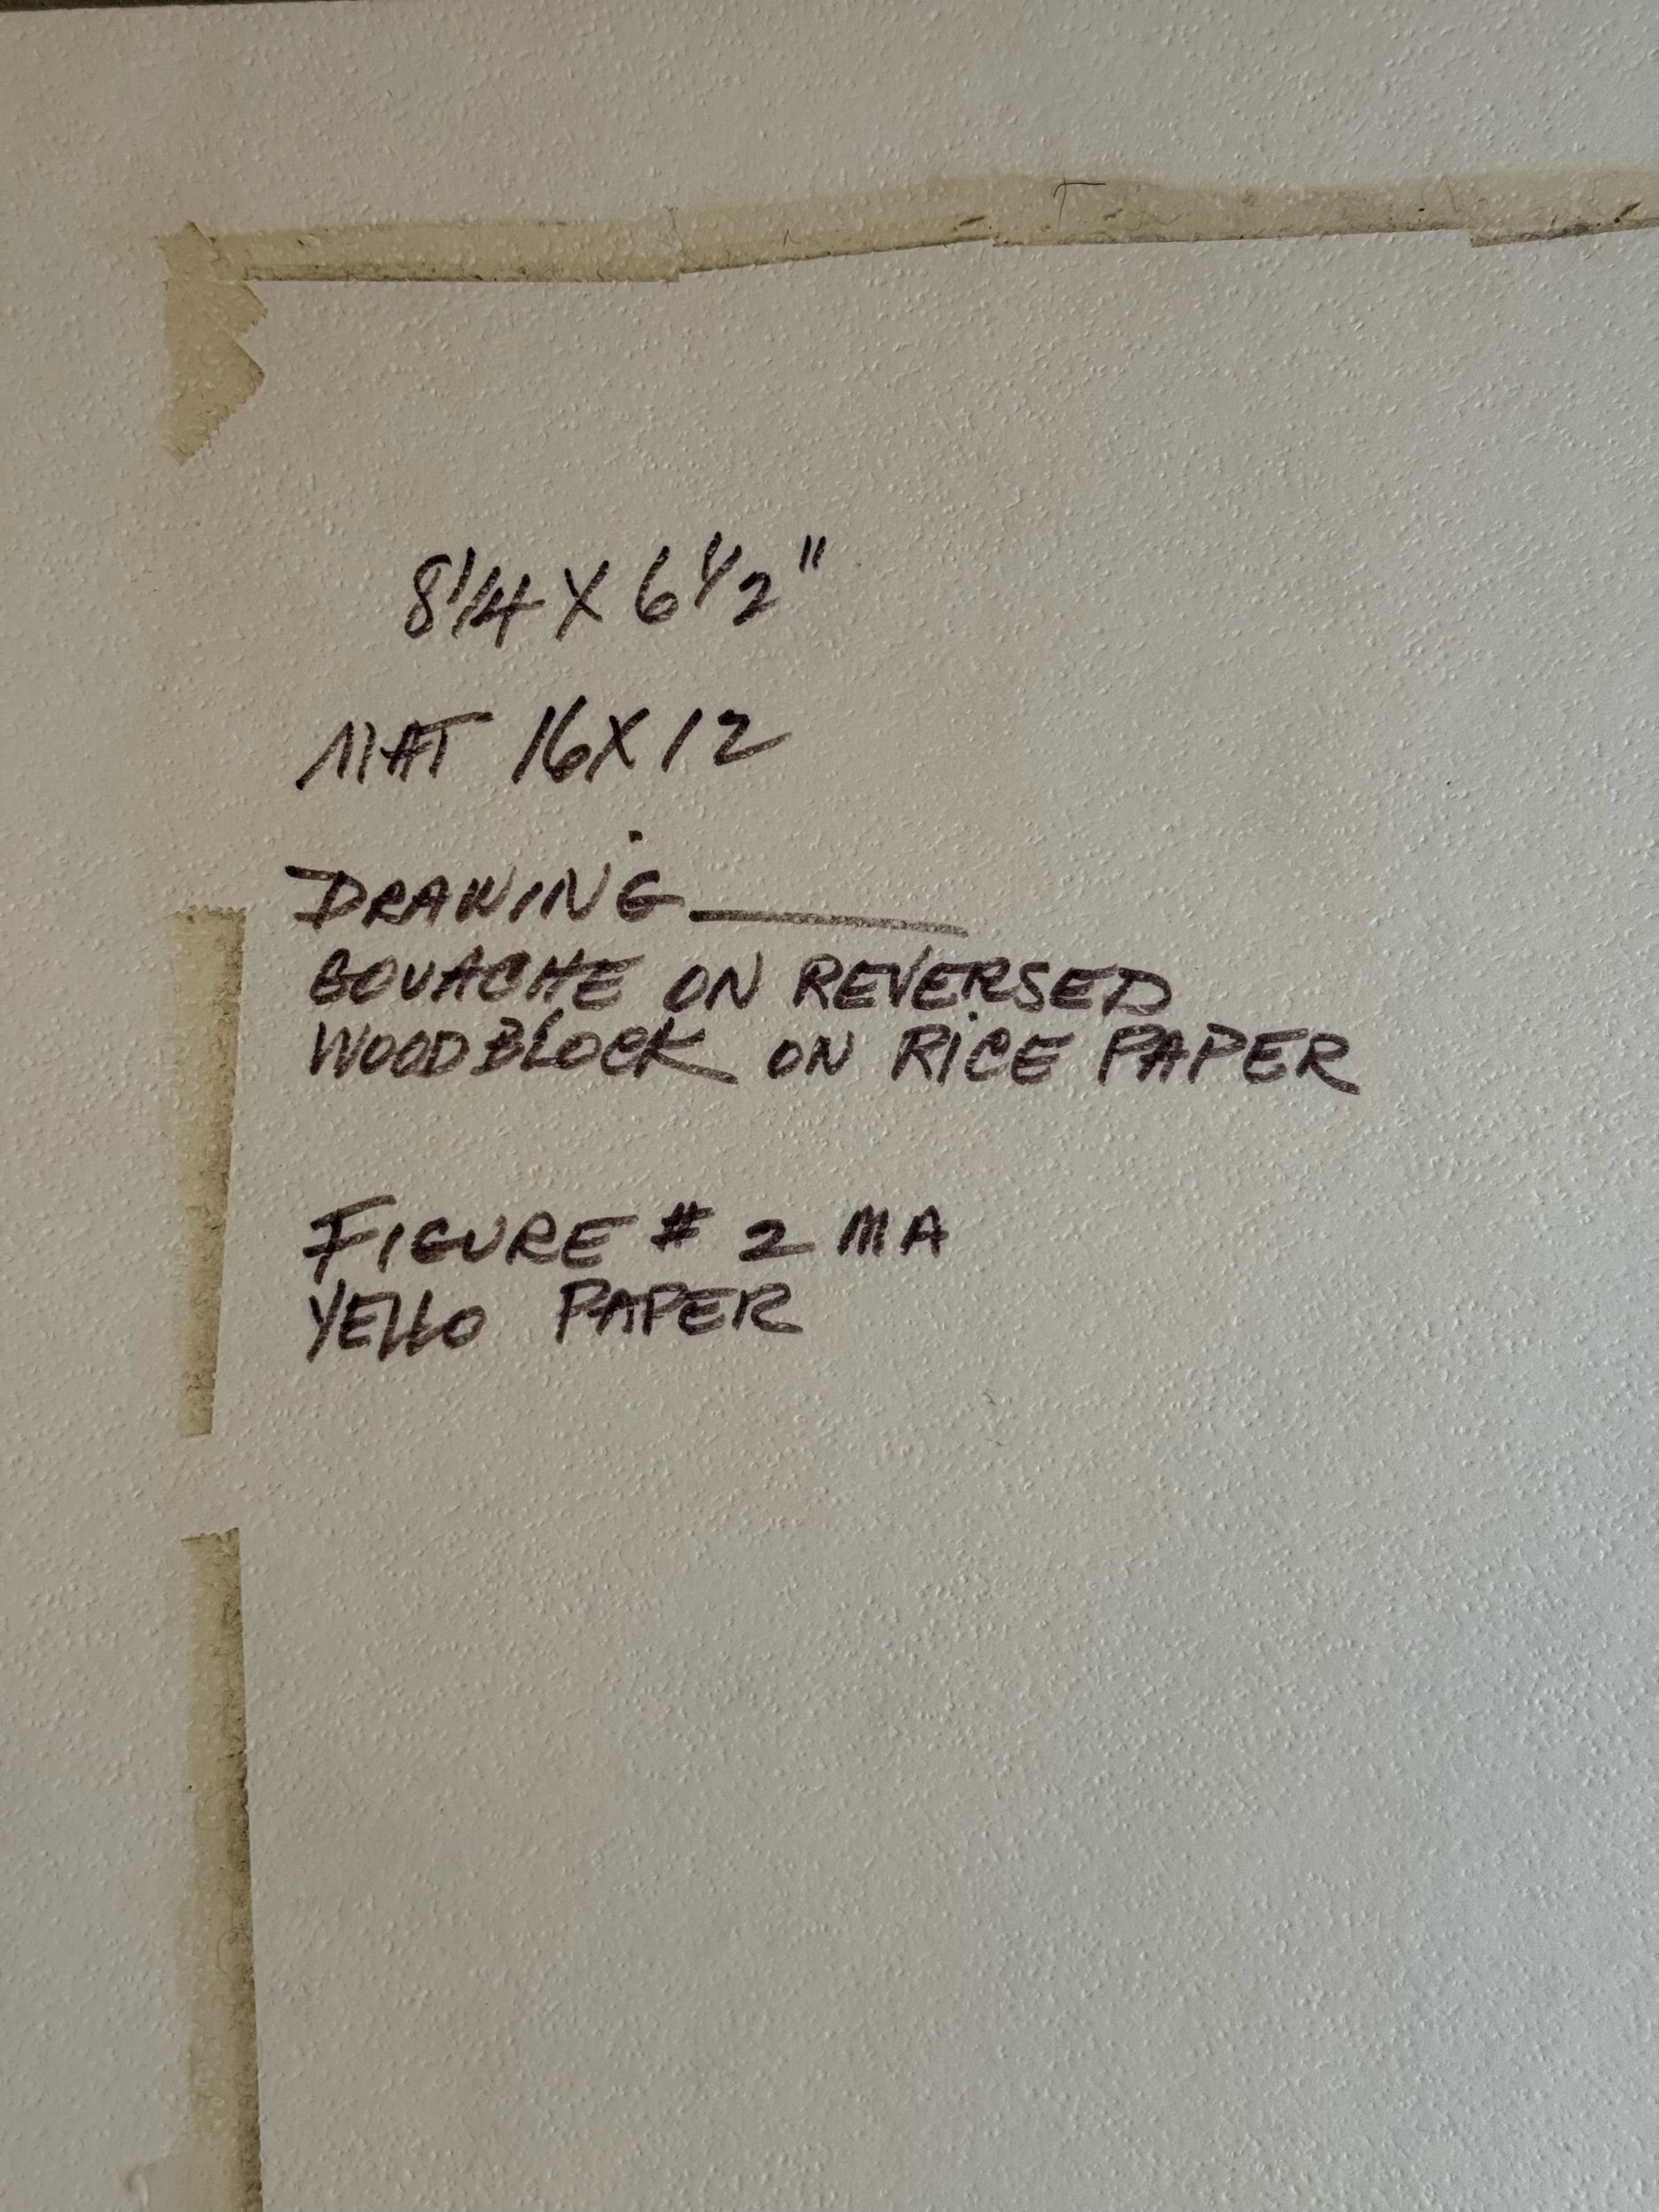 8 1/4 X 6 1/2"
MAT 16X12
DRAWING
GOUACHE ON REVERSED
WOODBLOCK ON RICE PAPER
FIGURE # 2 MA
YELLO PAPER